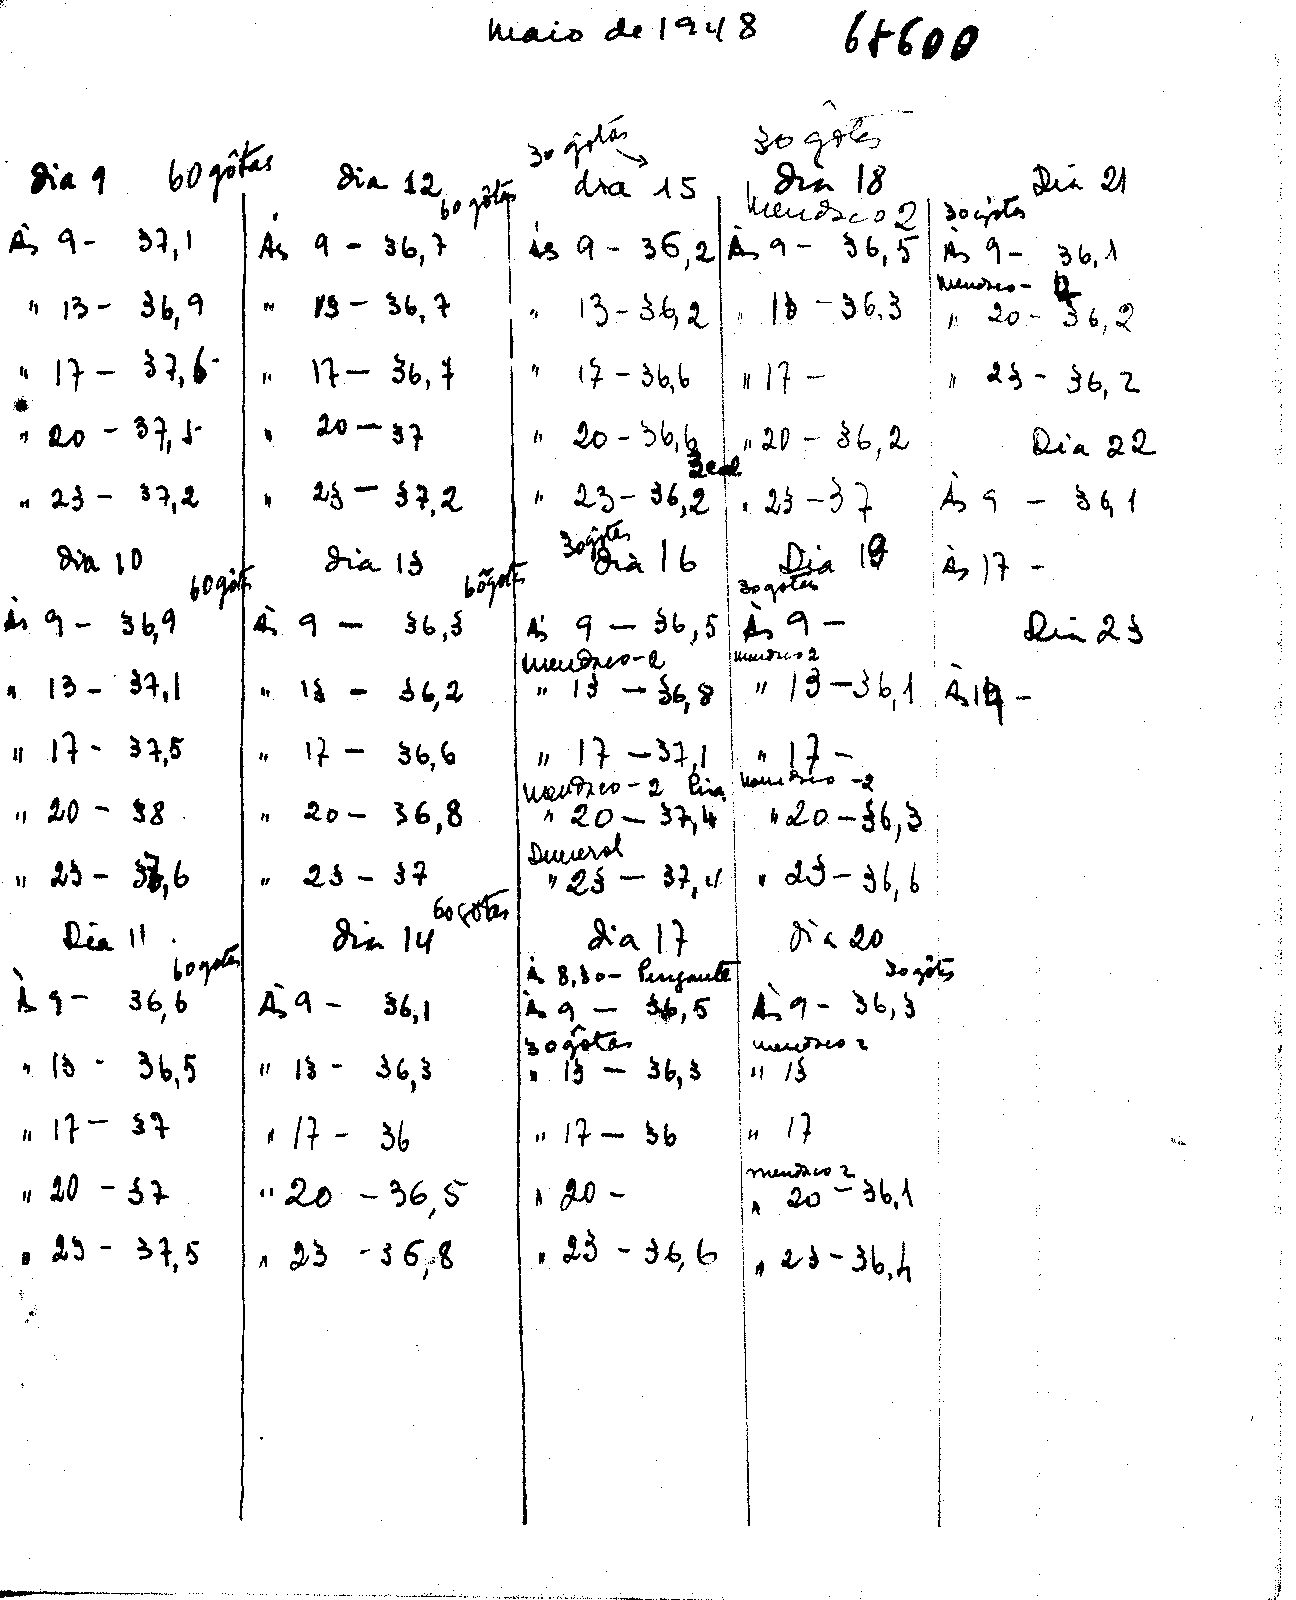 Maio de 1948
Dia 9 60 gôtas
Às 9 - 37,1
" 13 - 36,9
" 17 - 37,6
" 20 - 37,5
" 23 - 37,2
Dia 10
60 gôtas
Às 9 - 36,9
" 13 - 37,1
" 17 - 37,5
" 20 - 38
" 23 - 37,6
Dia 11
60 gotas
Às 9 - 36,6
" 13 - 36,5
" 17 - 37
" 20 - 37
" 23 - 37,5
Dia 12
60 gôtas
Às 9 - 36,7
" 13 - 36,7
" 17 - 36,7
" 20 - 37
" 23 - 37,2
Dia 13
60 gotas
Às 9 - 36,3
" 13 - 36,2
" 17 - 36,6
" 20 - 36,8
" 23 - 37
60 gotas
Dia 14
Às 9 - 36,1
" 13 - 36,3
" 17 - 36
" 20 - 36,5
" 23 - 36,8
30 gôtas
Dia 15
Às 9 - 36,2
" 13 - 36,2
" 17 - 36,6
" 20 - 36,6
" 23 - 36,2
30 gôtas
Dia 16
Às 9 - 36,5
Mendaco - 2
" 13 - 36,8
" 17 - 37,1
Mendaco - 2
" 20 - 37,4
Demerol
" 23 - 37,4
Dia 17
Às 8,30 - Purgante
Às 9 - 36,5
30 gôtas
" 13 - 36,3
" 17 - 36
" 20 -
" 23 - 36,6
30 gôtas
Dia 18
Mendaco 2
Às 9 - 36,5
" 13 - 36,3
" 17 -
" 20 - 36,2
" 23 - 37
Dia 19
30 gotas
Às 9 -
Mendaco 2
" 13 - 36,1
" 17 -
Mendaco - 2
" 20 - 36,3
" 23 - 36,6
Dia 20
30 gôtas
Às 9 - 36,3
Mendaco 2
" 13
" 17
Mendaco 2
" 20 - 36,1
" 23 - 36,4
Dia 21
30 gôtas
Às 9 - 36,1
Mendaco - 2
" 20 - 36,2
" 23 - 36,2
Dia 22
Às 9 - 36,1
Às 17 -
Dia 23
Às